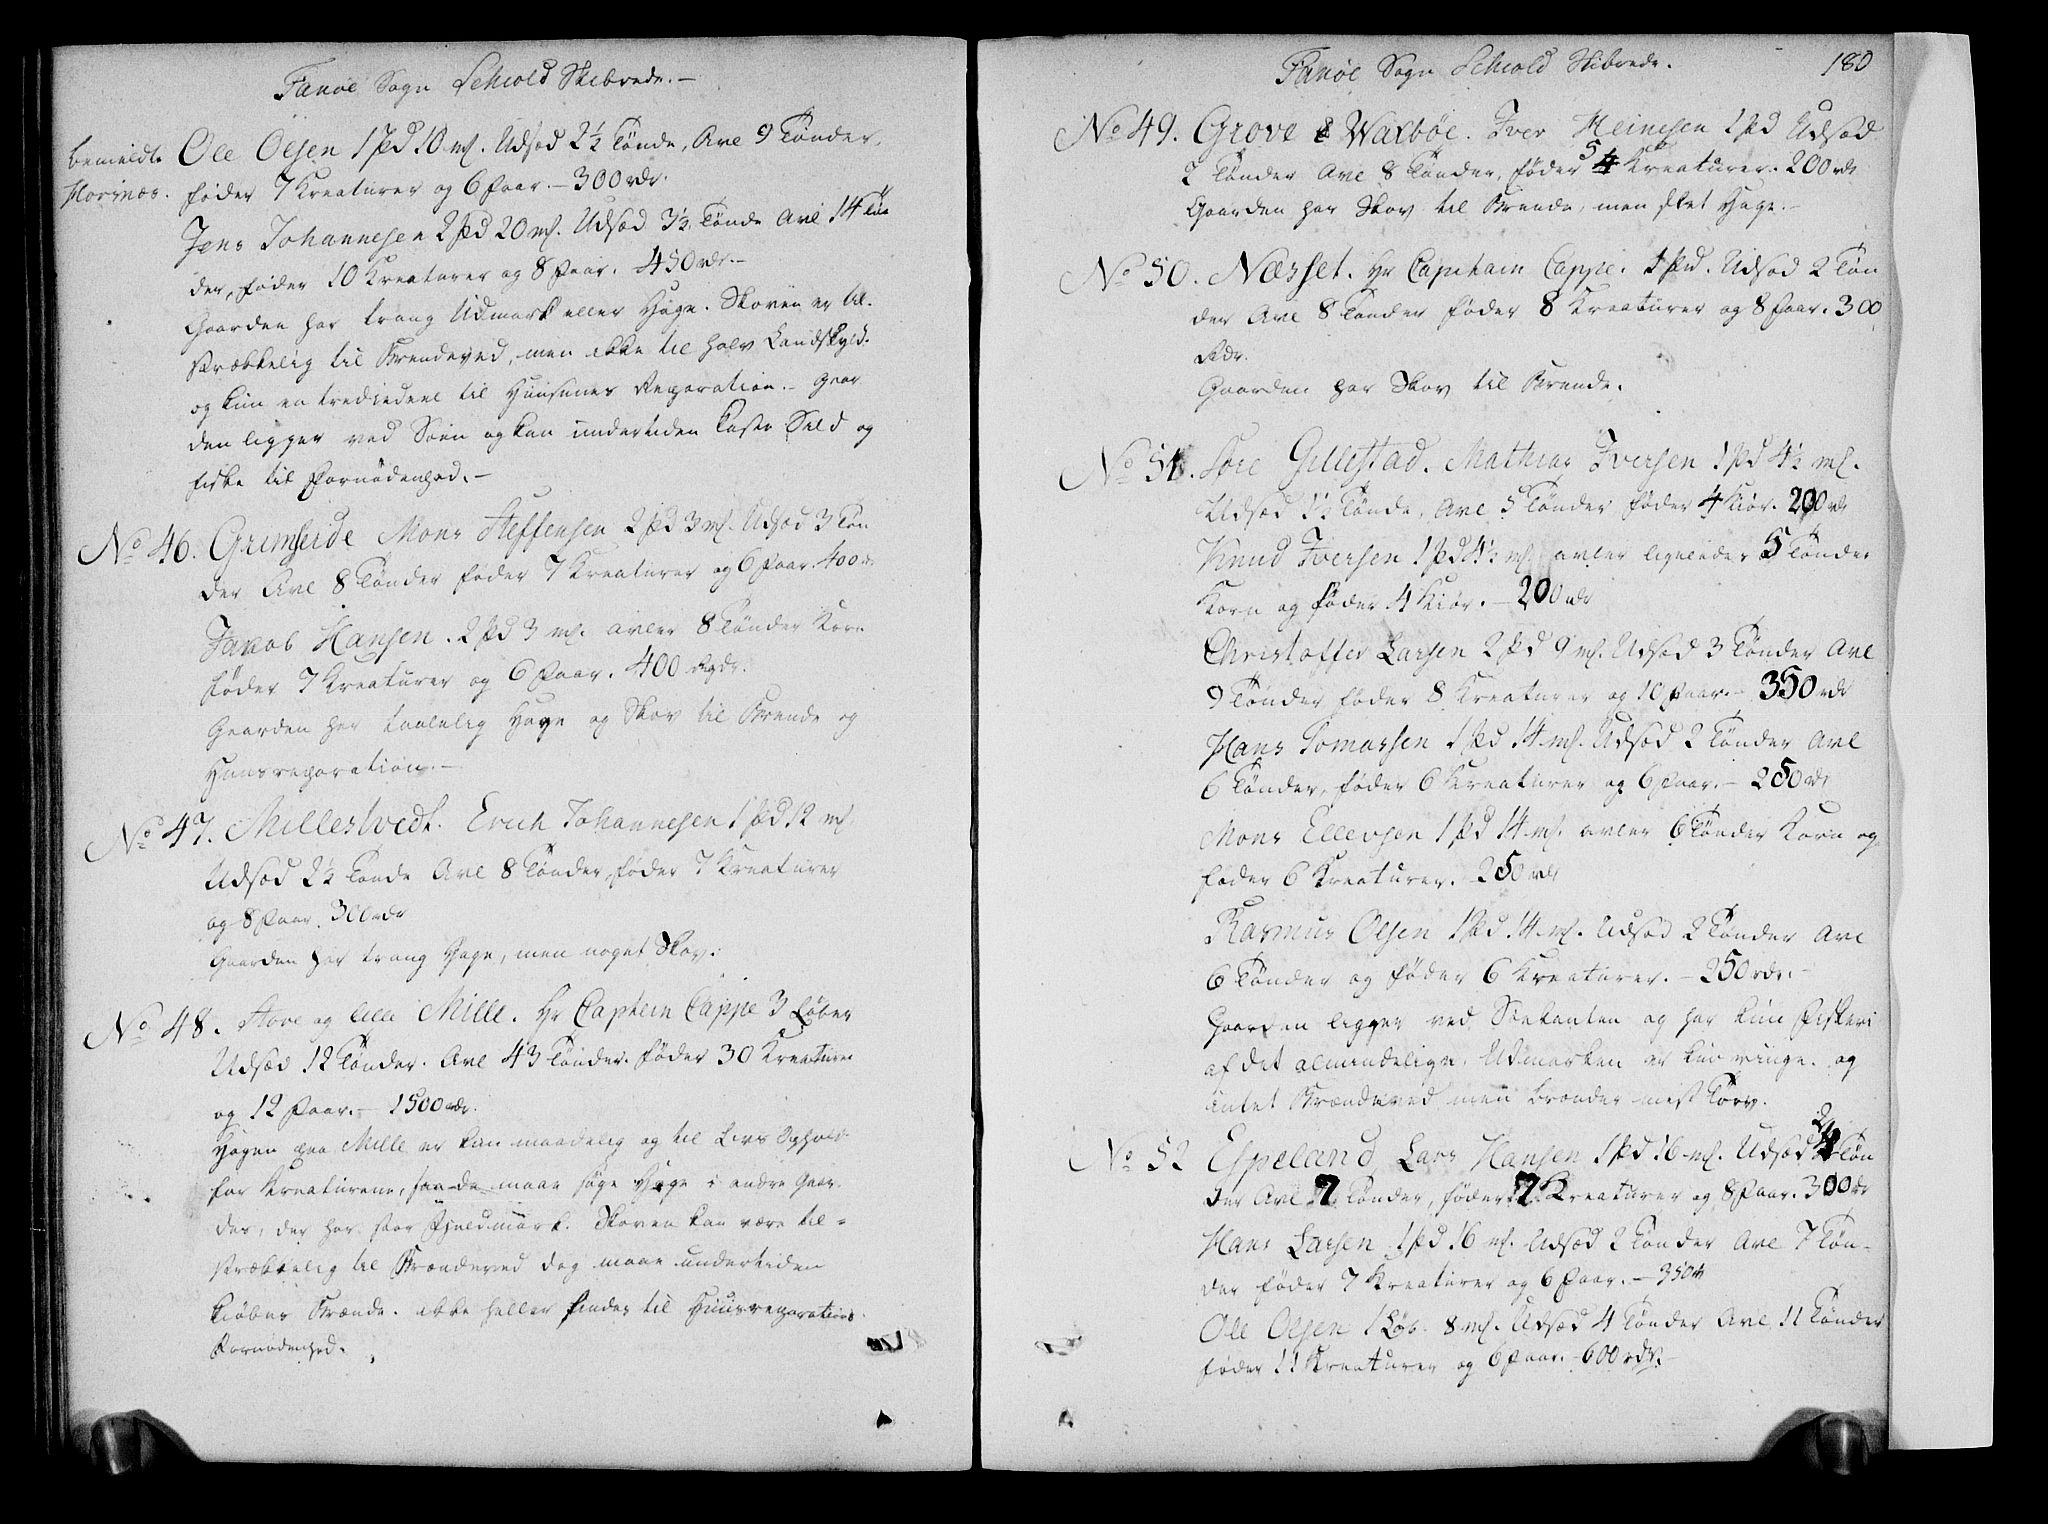 Fanøe Sogn Schiold Skibrede.-
bemeldte Ole Olsen 1 Pd 18 m/. Udsød 2½ Tønde, Avl 9 Tønder,
Horsnæs. føder 7 Kreaturer og 6 Faar.- 300 rdr.
Jens Johannesen 2 Pd 20 m/. Udsød 3½ Tønde Avl 14 Tøn
der, føder 10 Kreaturer og 8 Faar. 450 rdr.-
Gaarden har trang Udmark eller Hage. Skoven er til-
strækkelig til Brendeved, men ikke til halv Landskyld.
og kun en trediedeel til Huusenes Reparation.- Gaar
den ligger ved Søen og kan undertiden kaste Sild og
fiske til Fornødenhed.-
No 46. Grimseide Mons Steffensen 2 Pd 3 m/. Udsæd 3 Tøn
der Avl 8 Tønder føder 7 Kreaturer og 6 Faar. 400 r.
Jacob Hansen. 2 Pd 3 m/. avler 8 Tønder Korn
føder 7 Kreaturer og 6 Faar. 400 Rdr.
Gaarden har taalelig Hage og Skov til Brende og
Huusreparation.-
No 47. Millestvedt. Erich Johannesen 1 Pd 12 m/
Udsød 2½ Tønde Avl 8 Tønder, føder 7 Kreaturer
og 8 Faar. 300 rdr
Gaarden har trang Hage, men noget Skov.
No 48. Store og lille Mille. Hr Captein Cappe 3 Løber
Udsæd 12 Tønder. Avl 43 Tønder. føder 30 Kreature
og 12 Faar.- 1500 rdr.
Hagen paa Mille er kun maadelig og til Livs Ophold
for Kreaturene, saa de maae søge Hage i andre Gaar-
der, der har stor Fieldmark. Skoven kan være til-
strækkelig til Brændeved dog maae undertiden
kiøbes Brænde. ikke heller findes til Huusreparations
Fornødenhed.
Fanøe Sogn Schiold Skibrede. 180
No 49. Grove & Waxbøe. Iver Heinesen 1 Pd Udsød
2 Tønder Avl 8 Tønder, føder 5 4 Kreaturer. 200 rdr
Gaarden har Skov til Brende, men slet Hage.-
No 50. Næsset. Hr Capitain Cappe. 1 Pd. Udsød 2 Tøn
der Avl 8 Tønder føder 8 Kreaturer og 8 Faar. 300
Rdr.
Gaarden har Skov til Brende.
No 51. Søre Gillestad. Mathias Iversen 1 Pd 4½ m/.
Udsød 1½ Tønde, Avl 5 Tønder føder 4 Kiør. 200 rdr
Knud Iversen 1 Pd 4½ m/. avler ligeleder 5 Tønder
Korn og føder 4 Kiør.- 200 rdr
Christoffer Larsen 2 Pd 9 m/. Udsød 3 Tønder Avl
9 Tønder føder 8 Kreaturer og 10 Faar.- 350 rdr
Hans Tomassen 1 Pd 14 m/. Udsød 2 Tønder Avl
6 Tønder, føder 6 Kreaturer og 6 Faar.- 250 rdr
Mons Ellevsen 1 Pd 14 m/. avler 6 Tønder Korn og
føder 6 Kreaturer. 250 rdr
Rasmus Olsen 1 Pd. 14 m/. Udsød 2 Tønder Avl
6 Tønder og føder 6 Kreaturer.- 250 rdr.-
Gaarden ligger ved Søekanten og har kun Fiskeri
af det almindelige. Udmarken er kun ringe. og
intet Brændeved men brænder mest Torv.
No 52 Espeland, Lars Hansen 1 Pd 16 m/. Udsæd 2 Tøn
der Avl 7 Tønder, føder 7 Kreaturer og 8 Faar. 300 rdr
Hans Larsen 1 Pd 16 m/. Udsæd 2 Tønder Avl 7 Tøn-
der føder 7 Kreaturer og 6 Faar.- 350 r
Ole Olsen 1 Løb. 8 m/. Udsæd 4 Tønder Avl 11 Tønder
føder 11 Kreaturer og 6 Faar.- 600 rdr.-